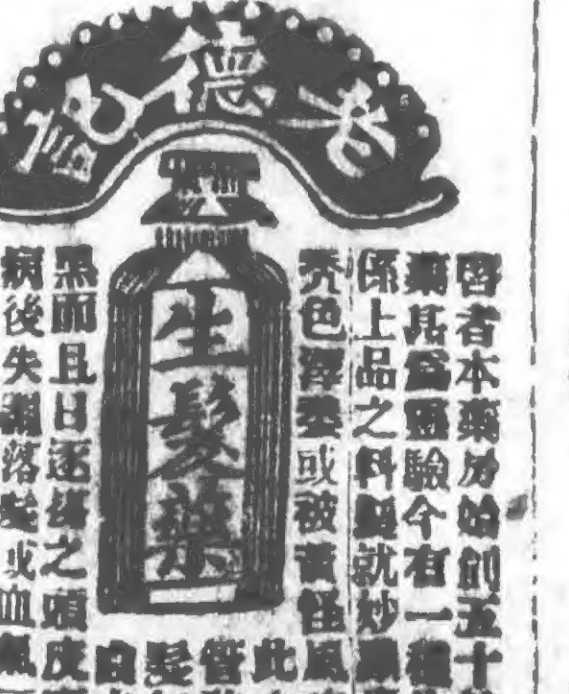 老德記
生髮藥
啓者本藥房始創五十
藥甚爲靈驗今有一種
係上品之料製就妙
禿色澤或被風
此
管
髮
黑而且日逐之頭皮
病後失調落髮或血氣